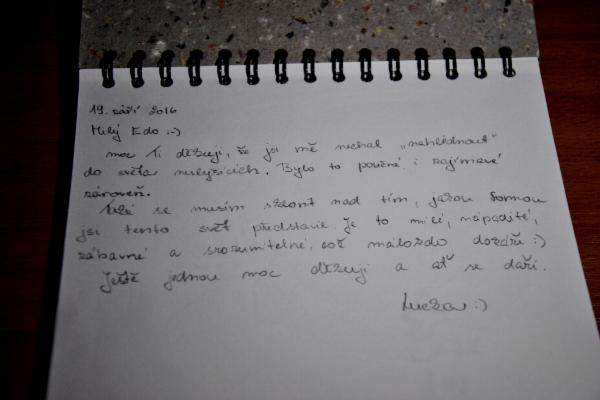 19. září 2016
Milý Edo :-)
moc Ti děkuji, že jsi mě nechal „nahlédnout"
do světa neslyšících. Bylo to poučné i zajímavé
zároveň.
Také se musím sklonit nad tím, jakou formou
jsi tento svět představil. Je to milé, nápadité,
zábavné a srozumitelné, což málokdo dokáže :)
Ještě jednou moc děkuji a ať se daří.
Lucka :)